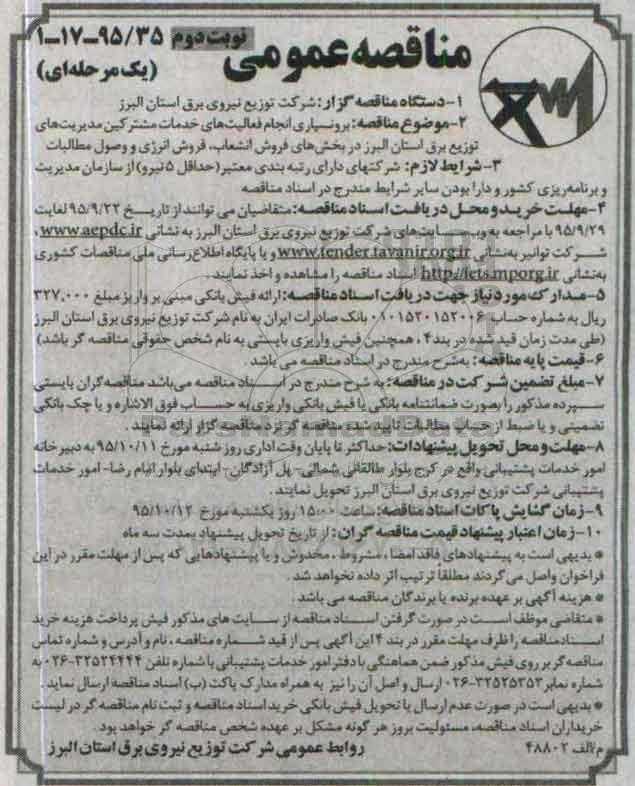 مناقصه عمومی
نوبت دوم ۹۵/۳۵-۱۷-۱
(یک مرحله‌ای)
۱-دستگاه مناقصه گزار: شرکت توزیع نیروی برق استان البرز
۲-موضوع مناقصه: برونسپاری انجام فعالیت‌های خدمات مشترکین مدیریت‌های
توزیع برق استان البرز در بخش‌های فروش انشعاب، فروش انرژی و وصول مطالبات
۳-شرایط لازم: شرکتهای دارای رتبه بندی معتبر (حداقل ۵ نیرو) از سازمان مدیریت
و برنامه‌ریزی کشور و دارا بودن سایر شرایط مندرج در اسناد مناقصه
۴-مهلت خرید و محل دریافت اسناد مناقصه: متقاضیان می توانند از تاریخ ۹۵/۹/۲۲ لغایت
۹۵/۹/۲۹ با مراجعه به وب‌سایت‌های شرکت توزیع نیروی برق استان البرز به نشانی www.aepdc.ir،
شرکت توانیر به‌نشانی www.tender.tavanir.org.ir و یا پایگاه اطلاع‌رسانی ملی مناقصات کشوری
به‌نشانی http://iets.mporg.ir اسناد مناقصه را مشاهده و اخذ نمایند.
۵-مدارک مورد نیاز جهت دریافت اسناد مناقصه: ارائه فیش بانکی مبنی بر واریز مبلغ ۳۲۷,۰۰۰
ریال به شماره حساب ۰۱۰۱۵۲۰۱۵۲۰۰۶ بانک صادرات ایران به نام شرکت توزیع نیروی برق استان البرز
(طی مدت زمان قید شده در بند۴، همچنین فیش واریزی بایستی به نام شخص حقوقی مناقصه گر باشد)
۶-قیمت پایه مناقصه: به‌شرح مندرج در اسناد مناقصه می باشد.
۷-مبلغ تضمین شرکت در مناقصه: به شرح مندرج در اسناد مناقصه می‌باشد مناقصه‌گران بایستی
سپرده مذکور را بصورت ضمانتنامه بانکی یا فیش بانکی واریزی به حساب فوق الاشاره و یا چک بانکی
تضمینی و یا ضبط از حساب مطالبات تایید شده مناقصه گر نزد مناقصه گزار ارائه نمایند.
۸-مهلت و محل تحویل پیشنهادات: حداکثر تا پایان وقت اداری روز شنبه مورخ ۹۵/۱۰/۱۱ به دبیرخانه
امور خدمات پشتیبانی واقع در کرج بلوار طالقانی شمالی- پل آزادگان- ابتدای بلوار امام رضا- امور خدمات
پشتیبانی شرکت توزیع نیروی برق استان البرز تحویل نمایند.
۹-زمان گشایش پاکات اسناد مناقصه: ساعت ۱۵:۰۰ روز یکشنبه مورخ ۹۵/۱۰/۱۲
۱۰-زمان اعتبار پیشنهاد قیمت مناقصه گران: از تاریخ تحویل پیشنهاد بمدت سه ماه
* بدیهی است به پیشنهادهای فاقد امضا، مشروط، مخدوش و یا پیشنهادهایی که پس از مهلت مقرر در این
فراخوان واصل می‌گردند مطلقاً ترتیب اثر داده نخواهد شد.
* هزینه آگهی بر عهده برنده یا برندگان مناقصه می باشد.
* متقاضی موظف است در صورت گرفتن اسناد مناقصه از سایت های مذکور فیش پرداخت هزینه خرید
اسناد مناقصه را ظرف مهلت مقرر در بند ۴ این آگهی پس از قید شماره مناقصه، نام و آدرس و شماره تماس
مناقصه گر بر روی فیش مذکور ضمن هماهنگی با دفتر امور خدمات پشتیبانی با شماره تلفن ۳۲۵۲۴۴۴۴-۰۲۶ به
شماره نمابر ۳۲۵۲۵۳۵۳-۰۲۶ ارسال و اصل آن را نیز به همراه مدارک پاکت (ب) اسناد مناقصه ارسال نماید.
* بدیهی است در صورت عدم ارسال یا تحویل فیش بانکی خرید اسناد مناقصه و ثبت نام مناقصه گر در لیست
خریداران اسناد مناقصه، مسئولیت بروز هر گونه مشکل بر عهده شخص مناقصه گر خواهد بود.
م/الف ۴۸۸۰۲ روابط عمومی شرکت توزیع نیروی برق استان البرز